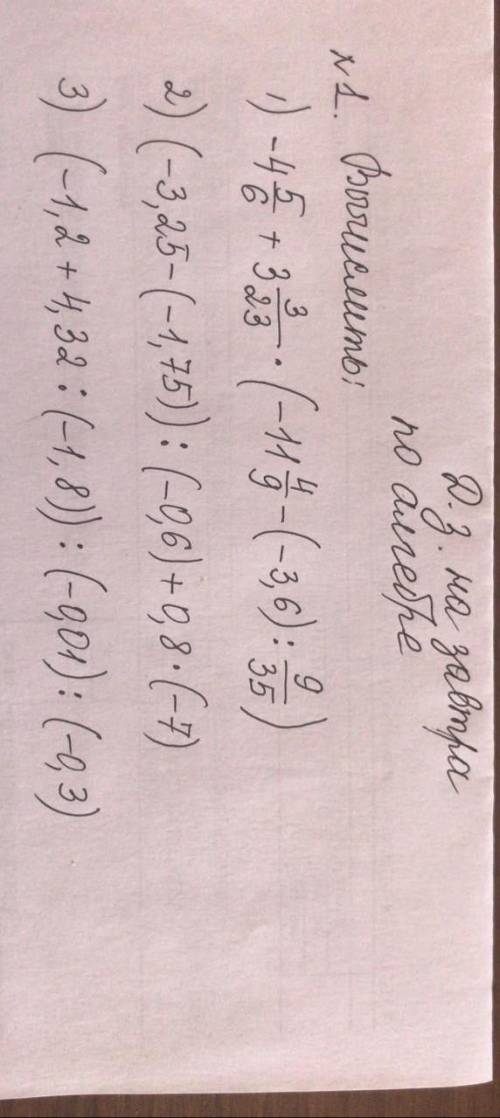 Д.з. на завтра
по алгебре
N1. Вычислить:
1) -4 5/6 + 3 3/23 · (-11 4/9 - (-3,6) : 9/35)
2) (-3,25 - (-1,75)) : (-0,6) + 0,8 · (-7)
3) (-1,2 + 4,32 : (-1,8)) : (-0,01) : (-0,3)